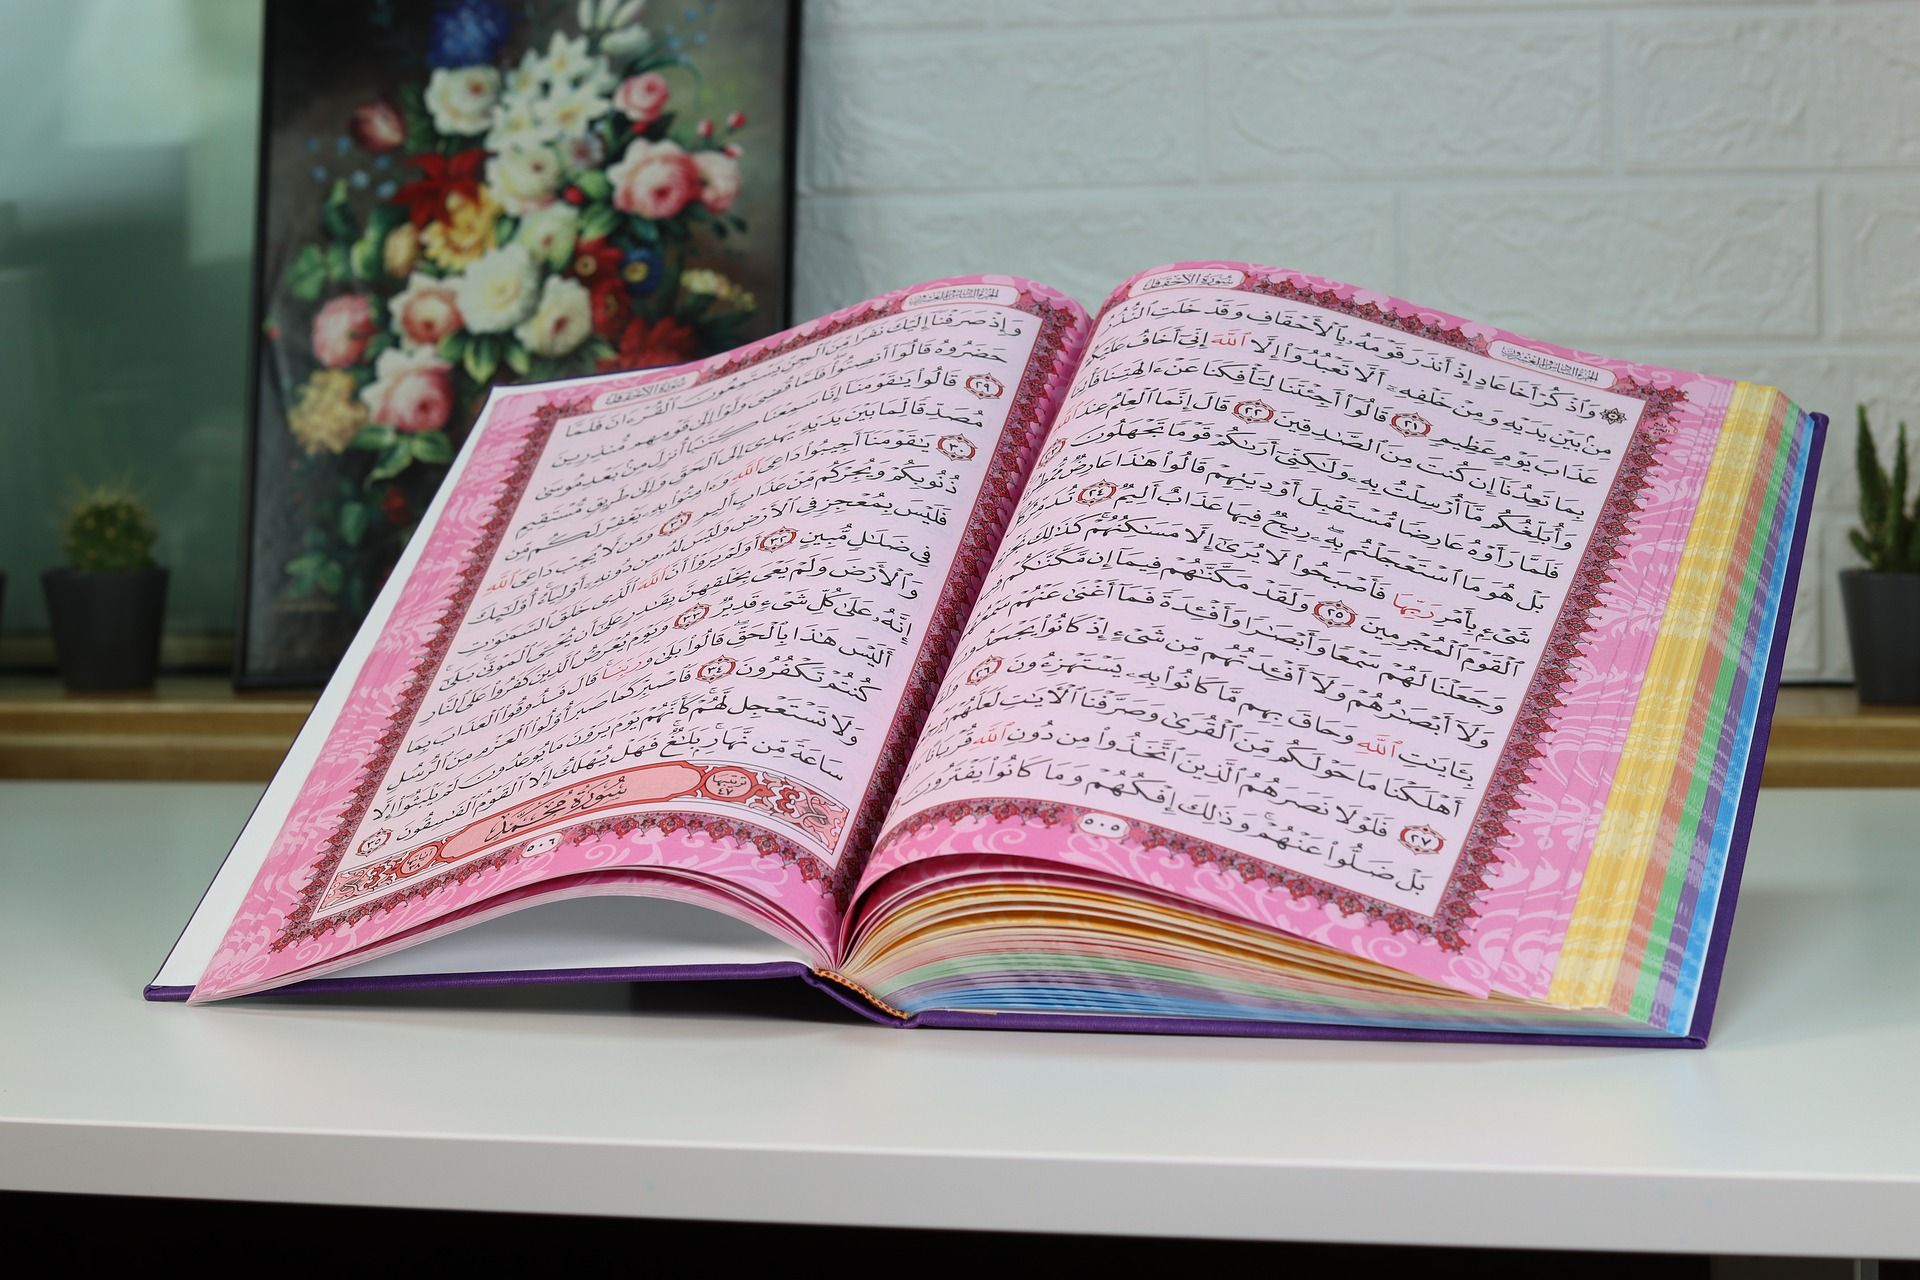 سُورَةُ الأَحْقَافِ
الجُزْءُ السَّادِسُ وَالعِشْرُونَ
۞ وَٱذْكُرْ أَخَا عَادٍ إِذْ أَنذَرَ قَوْمَهُۥ بِٱلْأَحْقَافِ وَقَدْ خَلَتِ ٱلنُّذُرُ
مِنۢ بَيْنِ يَدَيْهِ وَمِنْ خَلْفِهِۦٓ أَلَّا تَعْبُدُوٓا۟ إِلَّا ٱللَّهَ إِنِّىٓ أَخَافُ عَلَيْكُمْ
عَذَابَ يَوْمٍ عَظِيمٍ ٢١ قَالُوٓا۟ أَجِئْتَنَا لِتَأْفِكَنَا عَنْ ءَالِهَتِنَا فَأْتِنَا
بِمَا تَعِدُنَآ إِن كُنتَ مِنَ ٱلصَّٰدِقِينَ ٢٢ قَالَ إِنَّمَا ٱلْعِلْمُ عِندَ ٱللَّهِ
وَأُبَلِّغُكُم مَّآ أُرْسِلْتُ بِهِۦ وَلَٰكِنِّىٓ أَرَىٰكُمْ قَوْمًا تَجْهَلُونَ ٢٣
فَلَمَّا رَأَوْهُ عَارِضًا مُّسْتَقْبِلَ أَوْدِيَتِهِمْ قَالُوا۟ هَٰذَا عَارِضٌ مُّمْطِرُنَا
بَلْ هُوَ مَا ٱسْتَعْجَلْتُم بِهِۦ رِيحٌ فِيهَا عَذَابٌ أَلِيمٌ ٢٤ تُدَمِّرُ كُلَّ
شَىْءٍۭ بِأَمْرِ رَبِّهَا فَأَصْبَحُوا۟ لَا يُرَىٰٓ إِلَّا مَسَٰكِنُهُمْ كَذَٰلِكَ نَجْزِى
ٱلْقَوْمَ ٱلْمُجْرِمِينَ ٢٥ وَلَقَدْ مَكَّنَّٰهُمْ فِيمَآ إِن مَّكَّنَّٰكُمْ فِيهِ
وَجَعَلْنَا لَهُمْ سَمْعًا وَأَبْصَٰرًا وَأَفْـِٔدَةً فَمَآ أَغْنَىٰ عَنْهُمْ سَمْعُهُمْ
وَلَآ أَبْصَٰرُهُمْ وَلَآ أَفْـِٔدَتُهُم مِّن شَىْءٍ إِذْ كَانُوا۟ يَجْحَدُونَ
بِـَٔايَٰتِ ٱللَّهِ وَحَاقَ بِهِم مَّا كَانُوا۟ بِهِۦ يَسْتَهْزِءُونَ ٢٦
أَهْلَكْنَا مَا حَوْلَكُم مِّنَ ٱلْقُرَىٰ وَصَرَّفْنَا ٱلْءَايَٰتِ لَعَلَّهُمْ
٢٧ فَلَوْلَا نَصَرَهُمُ ٱلَّذِينَ ٱتَّخَذُوا۟ مِن دُونِ ٱللَّهِ قُرْبَانًا
بَلْ ضَلُّوا۟ عَنْهُمْ وَذَٰلِكَ إِفْكُهُمْ وَمَا كَانُوا۟ يَفْتَرُونَ
٥٠٥
الجُزْءُ السَّادِسُ وَالعِشْرُونَ
سُورَةُ الأَحْقَافِ
وَإِذْ صَرَفْنَآ إِلَيْكَ نَفَرًا مِّنَ ٱلْجِنِّ يَسْتَمِعُونَ ٱلْقُرْءَانَ فَلَمَّا
حَضَرُوهُ قَالُوٓا۟ أَنصِتُوا۟ فَلَمَّا قُضِىَ وَلَّوْا۟ إِلَىٰ قَوْمِهِم مُّنذِرِينَ
٢٩ قَالُوا۟ يَٰقَوْمَنَآ إِنَّا سَمِعْنَا كِتَٰبًا أُنزِلَ مِنۢ بَعْدِ مُوسَىٰ
مُصَدِّقًا لِّمَا بَيْنَ يَدَيْهِ يَهْدِىٓ إِلَى ٱلْحَقِّ وَإِلَىٰ طَرِيقٍ مُّسْتَقِيمٍ
٣٠ يَٰقَوْمَنَآ أَجِيبُوا۟ دَاعِىَ ٱللَّهِ وَءَامِنُوا۟ بِهِۦ يَغْفِرْ لَكُم مِّن
ذُنُوبِكُمْ وَيُجِرْكُم مِّنْ عَذَابٍ أَلِيمٍ ٣١ وَمَن لَّا يُجِبْ دَاعِىَ ٱللَّهِ
فَلَيْسَ بِمُعْجِزٍ فِى ٱلْأَرْضِ وَلَيْسَ لَهُۥ مِن دُونِهِۦٓ أَوْلِيَآءُ أُو۟لَٰٓئِكَ
فِى ضَلَٰلٍ مُّبِينٍ ٣٢ أَوَلَمْ يَرَوْا۟ أَنَّ ٱللَّهَ ٱلَّذِى خَلَقَ ٱلسَّمَٰوَٰتِ
وَٱلْأَرْضَ وَلَمْ يَعْىَ بِخَلْقِهِنَّ بِقَٰدِرٍ عَلَىٰٓ أَن يُحْـِۧىَ ٱلْمَوْتَىٰ بَلَىٰٓ
إِنَّهُۥ عَلَىٰ كُلِّ شَىْءٍ قَدِيرٌ ٣٣ وَيَوْمَ يُعْرَضُ ٱلَّذِينَ كَفَرُوا۟ عَلَى ٱلنَّارِ
أَلَيْسَ هَٰذَا بِٱلْحَقِّ قَالُوا۟ بَلَىٰ وَرَبِّنَا قَالَ فَذُوقُوا۟ ٱلْعَذَابَ بِمَا
كُنتُمْ تَكْفُرُونَ ٣٤ فَٱصْبِرْ كَمَا صَبَرَ أُو۟لُوا۟ ٱلْعَزْمِ مِنَ ٱلرُّسُلِ
وَلَا تَسْتَعْجِل لَّهُمْ كَأَنَّهُمْ يَوْمَ يَرَوْنَ مَا يُوعَدُونَ لَمْ يَلْبَثُوٓا۟ إِلَّا
سَاعَةً مِّن نَّهَارٍۭ بَلَٰغٌ فَهَلْ يُهْلَكُ إِلَّا ٱلْقَوْمُ ٱلْفَٰسِقُونَ ٣٥
ترتيبها ٤٧ سُورَةُ مُحَمَّدٍ آياتها ٣٨
٥٠٦